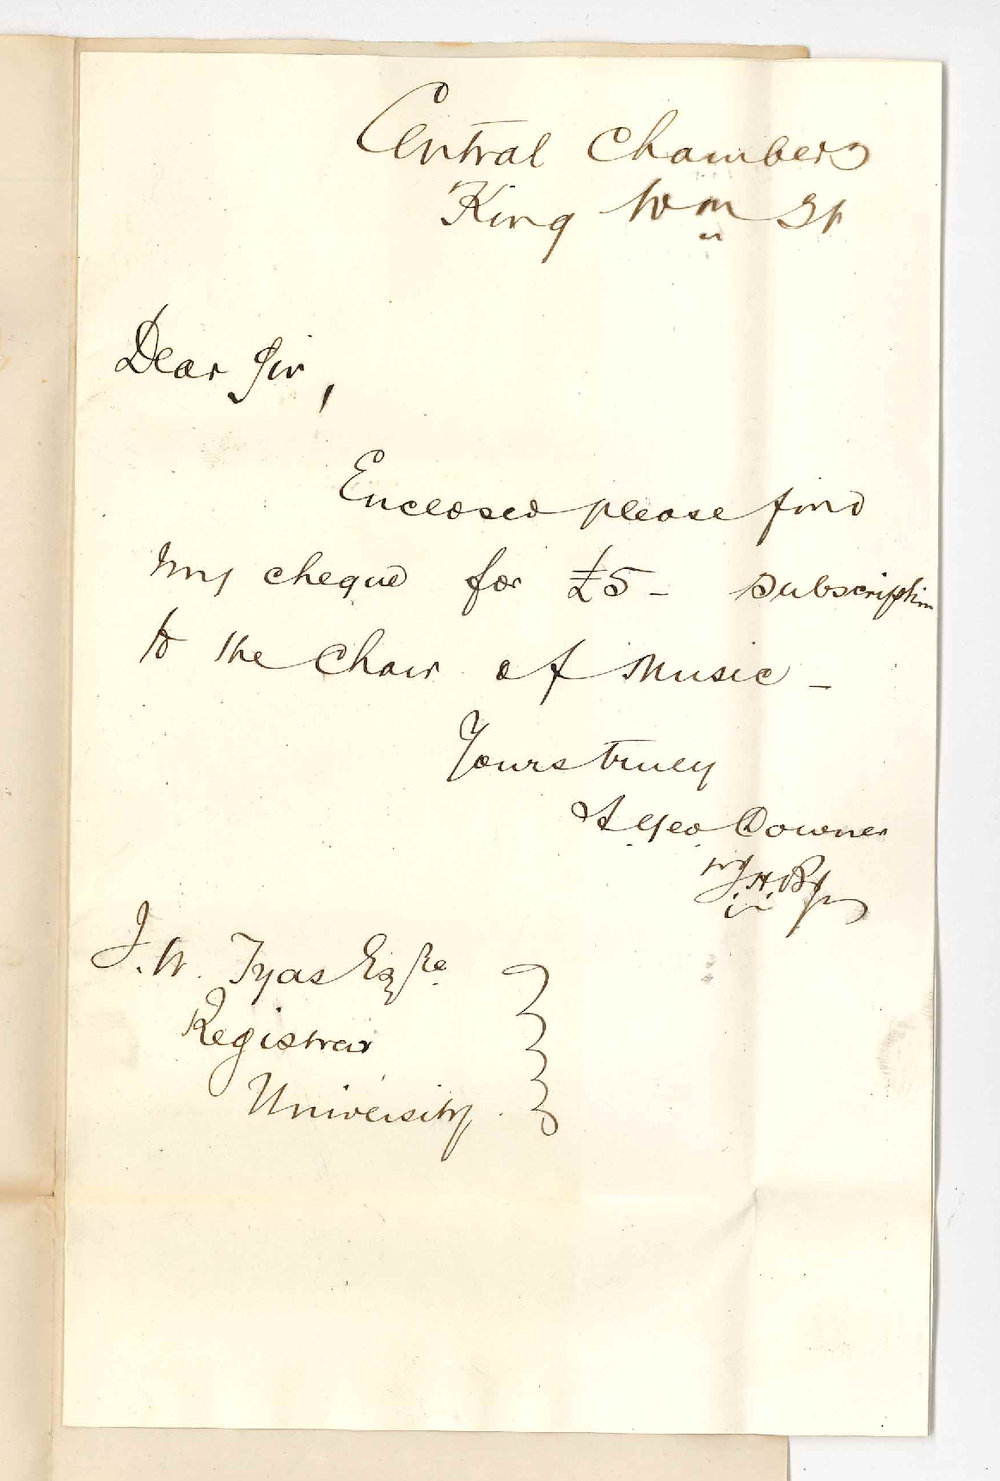 Central Chambers
King Wm St
Dear Sir,
Enclosed please find
my cheque for £5 - subscription
to the Chair of Music -
Yours truly
A Geo Downer
J. W. Tyas Esqre
Registrar
University